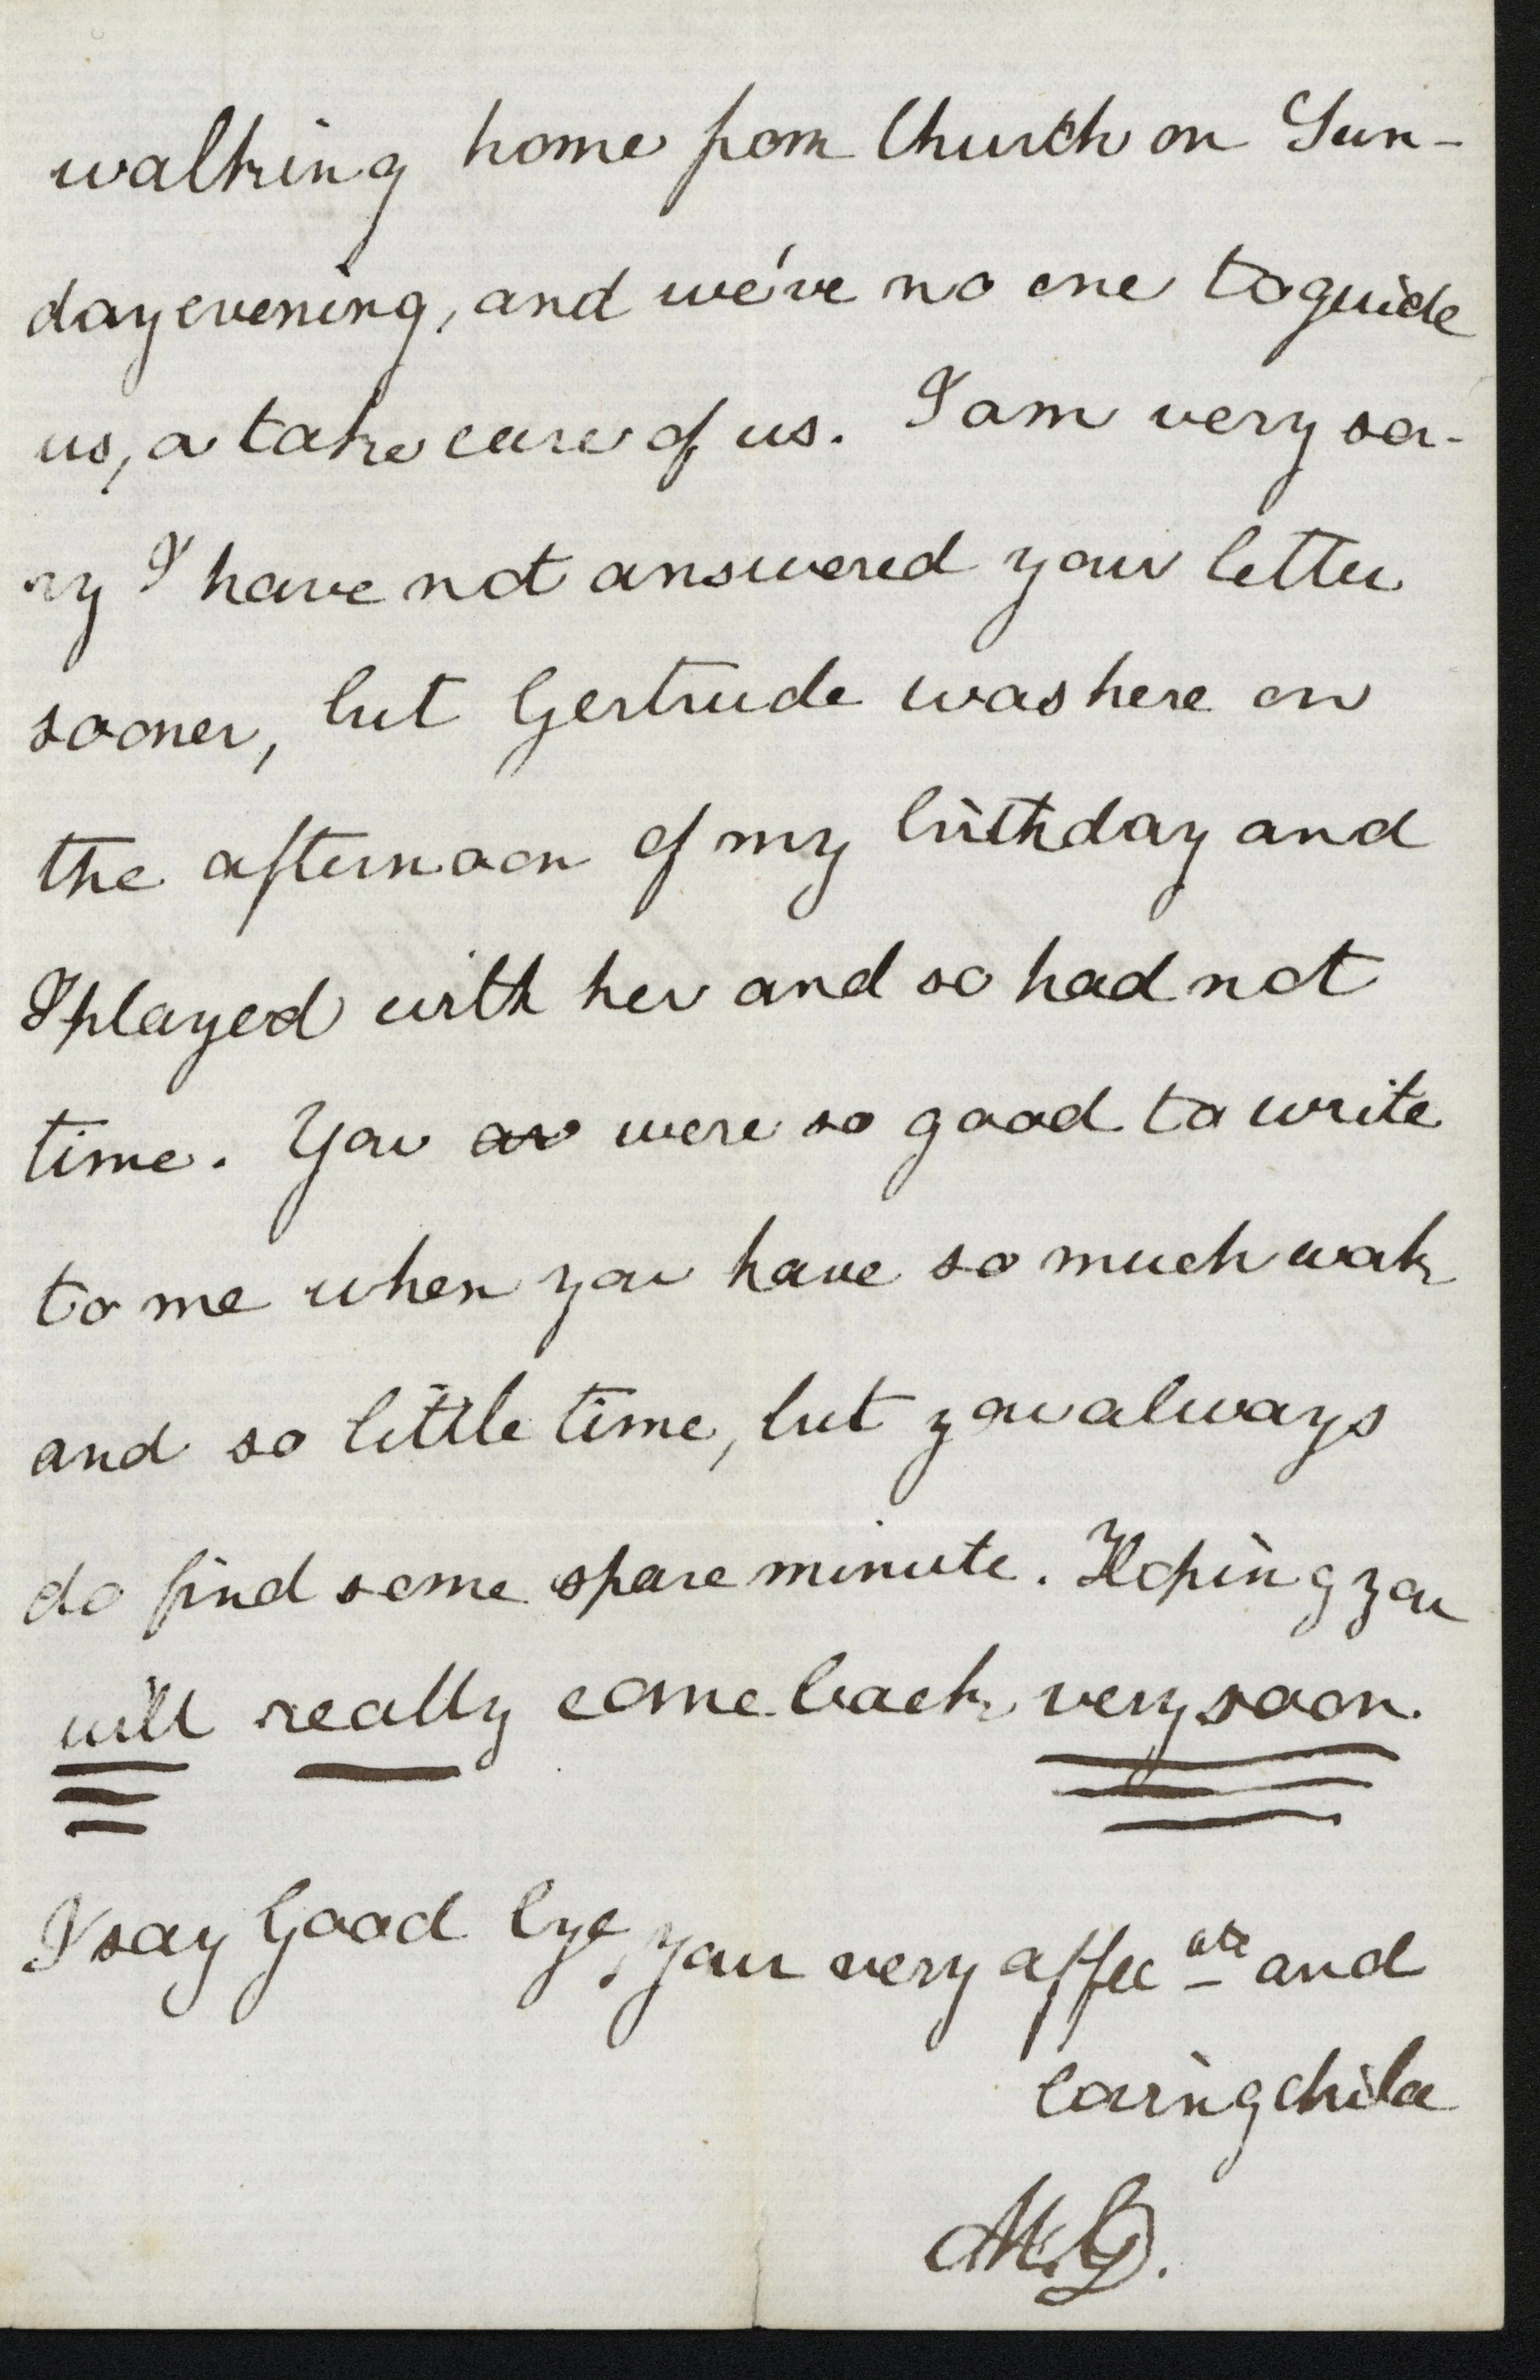 walking home from Church on Sun-
day evening, and we've no one to guide
us, or take care of us. I am very sor-
ry I have not answered your letter
sooner, but Gertrude was here on
the afternoon of my birthday and
I played with her and so had not
time. You ar were so good to write
to me when you have so much work
and so little time, but you always
do find some spare minute. Hoping you
will really come back very soon.
I say Good bye, your very affec ate and
loving child
M.G.